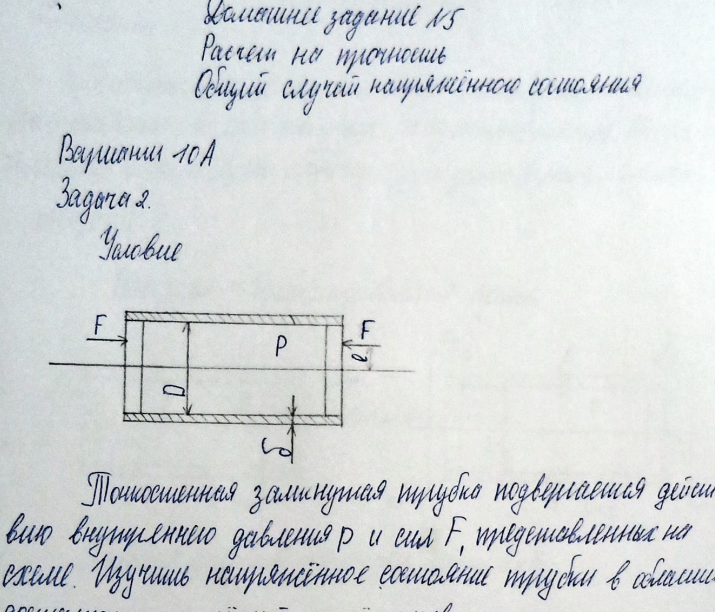 Домашнее задание №5
Расчет на прочность
Общий случай напряжённого состояния
Вариант 10А
Задача 2.
Условие
F
P
F
e
D
δ
Тонкостенная замкнутая трубка подвергается дейст
вию внутреннего давления p и сил F, представленных на
схеме. Изучить напряжённое состояние трубки в области